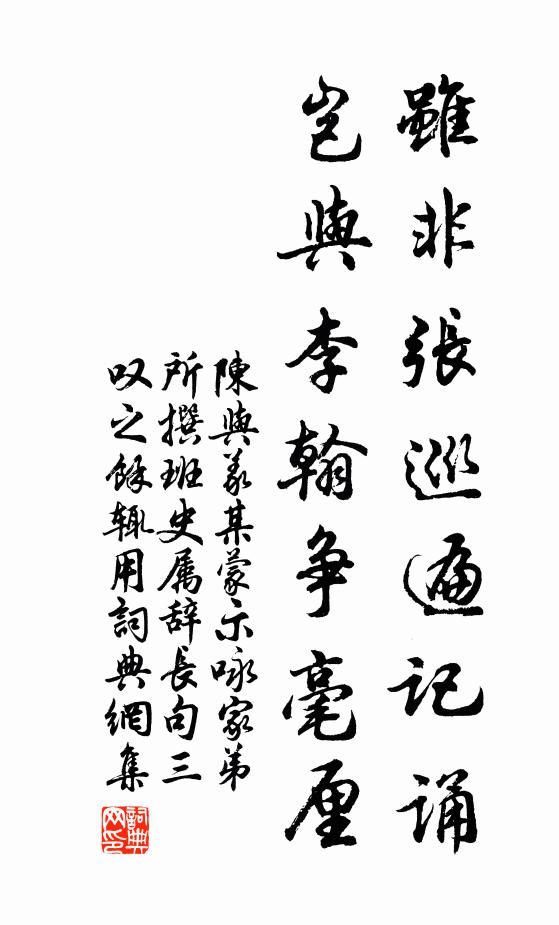 雖非張巡遍記誦
豈與李翰爭毫厘
陳與義某蒙示咏家弟
所撰班史属辞長句三
叹之餘輒用詞典網集
詞典网印